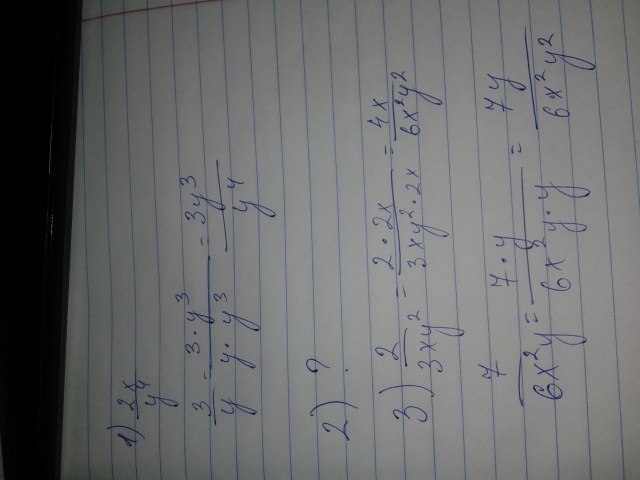 1) 2x/y⁴
3/y = 3·y³/y·y³ = 3y³/y⁴
2) ?
3) 2/3xy² = 2·2x/3xy²·2x = 4x/6x²y²
7/6x²y = 7·y/6x²y·y = 7y/6x²y²